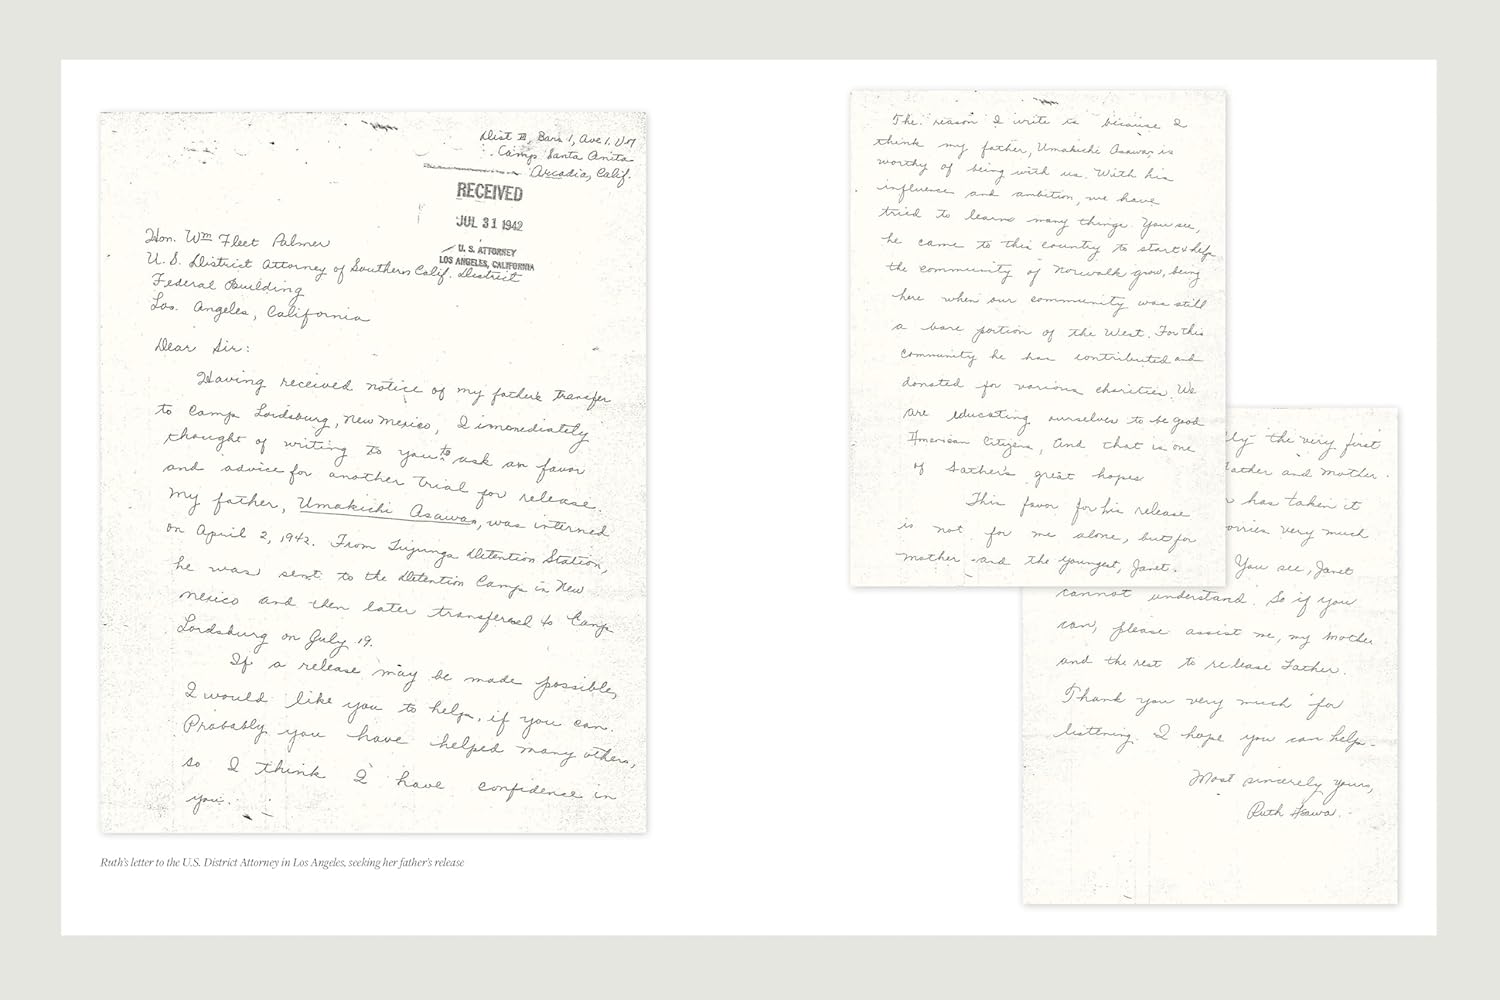 Dist II, Bara 1, Ave 1. U-7
Camp Santa Anita
Arcadia, Calif.
RECEIVED
JUL 31 1942
U. S. ATTORNEY
LOS ANGELES, CALIFORNIA
Hon. Wm Fleet Palmer
U. S. District Attorney of Southern Calif. District
Federal Building
Los. Angeles, California
Dear Sir:
Having received notice of my father's transfer
to Camp Lordsburg, New Mexico, I immediately
thought of writing to you to ask an favor
and advice for another trial for release.
My father, Umakichi Asawa, was interned
on April 2, 1942. From Tujunga Detention Station,
he was sent to the Detention Camp in New
Mexico and then later transferred to Camp
Lordsburg on July 19.
If a release may be made possible,
I would like you to help, if you can.
Probably you have helped many others,
so I think I have confidence in
you.
Ruth's letter to the U.S. District Attorney in Los Angeles, seeking her father's release
The reason I write is because I
think my father, Umakichi Asawa, is
worthy of being with us. With his
influence and ambition, we have
tried to learn many things. You see,
he came to this country to start & help
the community of Norwalk grow, being
here when our community was still
a bare portion of the West. For this
community he has contributed and
donated for various charities. We
are educating ourselves to be good
American Citizens, And that is one
of Father's great hopes
This favor for his release
is not for me alone, but for
mother and the youngest, Janet.
ly the very first
ather and mother.
r has taken it
orries very much
You see, Janet
cannot understand. So if you
can, please assist me, my mother
and the rest to release Father.
Thank you very much for
listening. I hope you can help.
Most sincerely yours,
Ruth Asawa.